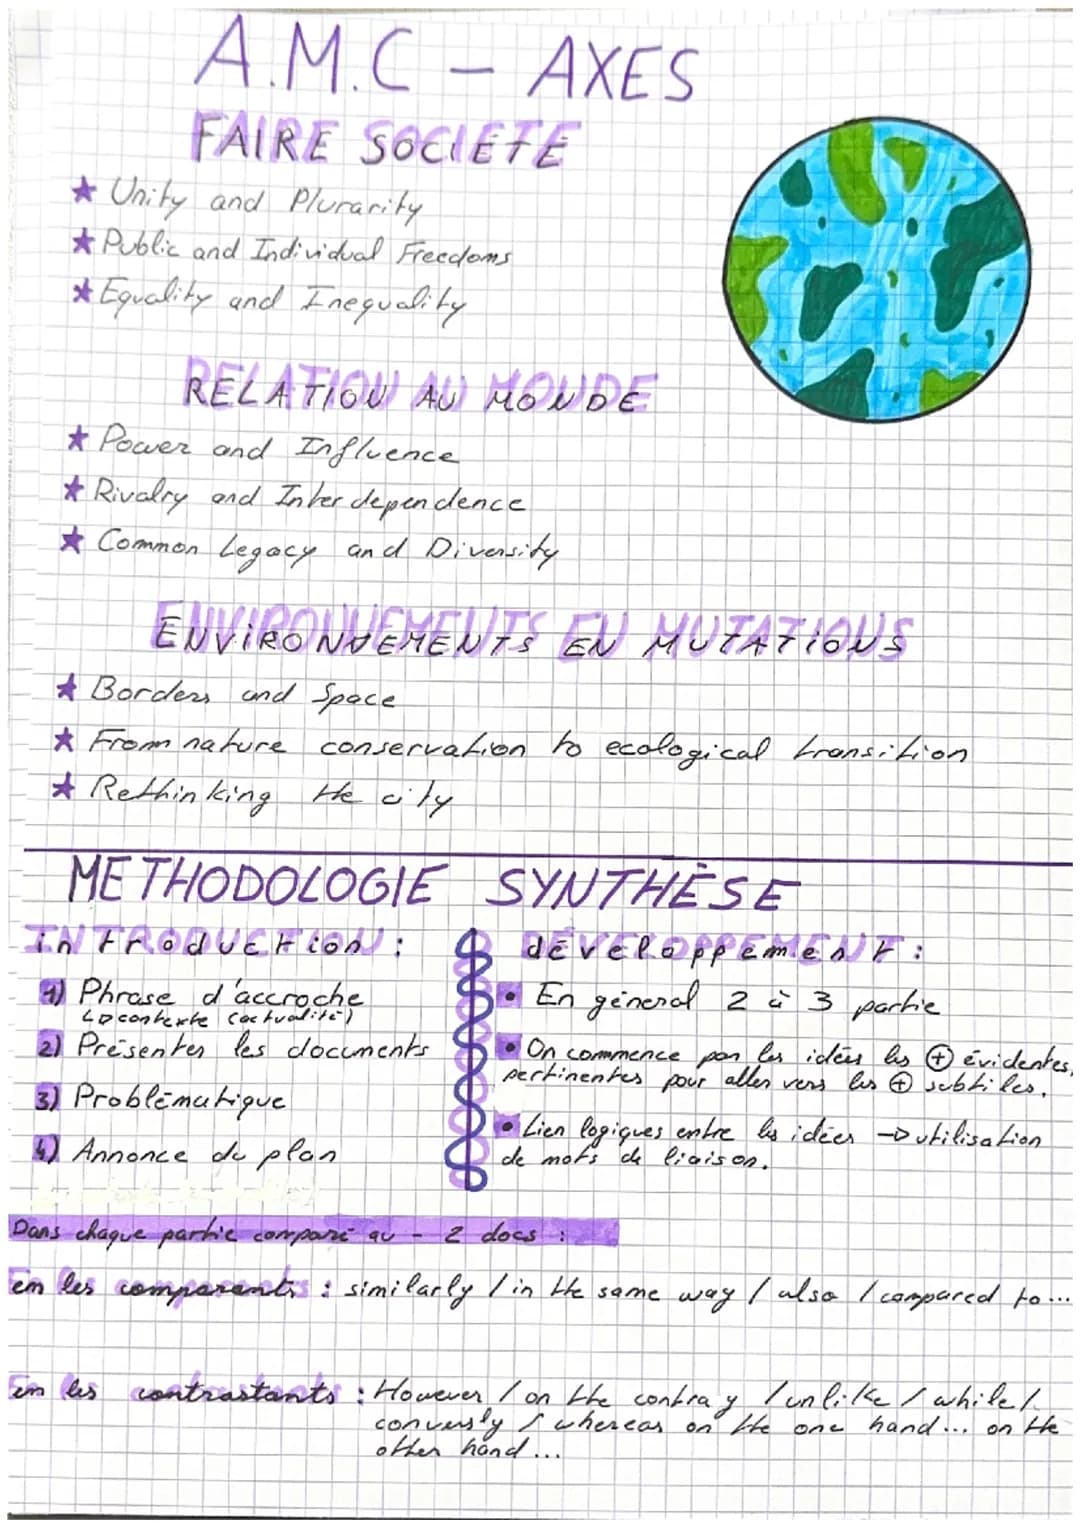 A.M.C – AXES
FAIRE SOCIÉTÉ
★ Unity and Plurarity
★ Public and Individual Freedoms
★ Equality and Inequality
RELATION AU MONDE
★ Power and Influence
★ Rivalry and Interdependence
★ Common Legacy and Diversity
ENVIRONNEMENTS EN MUTATIONS
★ Borders and Space
★ From nature conservation to ecological transition
★ Rethinking the city
METHODOLOGIE SYNTHÈSE
introduction :
1) Phrase d'accroche
↳ contexte (actualité)
2) Présenter les documents
3) Problématique
4) Annonce du plan
développement :
• En général 2 à 3 partie
• On commence par les idées les ⊕ évidentes,
pertinentes pour aller vers les ⊕ subtiles.
• Lien logiques entre les idées → utilisation
de mots de liaison.
Dans chaque partie comparé au - 2 docs :
en les comparants : similarly / in the same way / also / compared to...
en les contrastants : However / on the contray / unlike / while /
conversly / whereas on the one hand... on the
other hand...